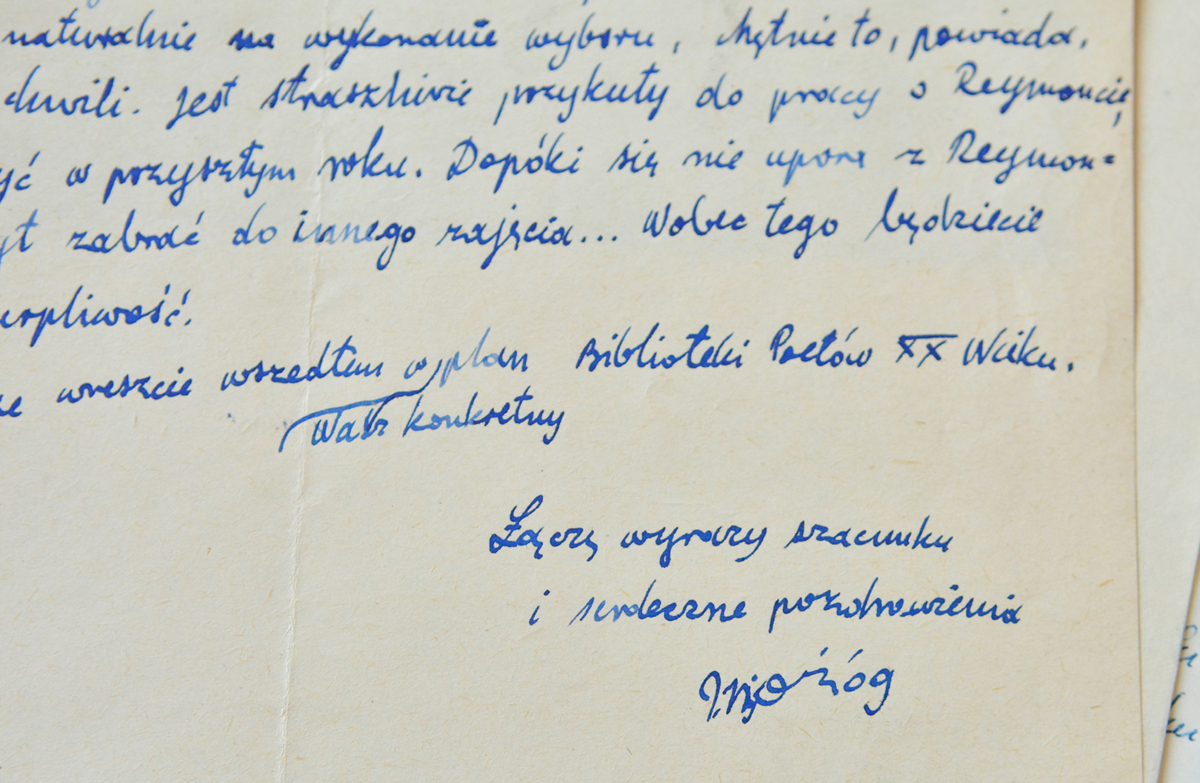 naturalnie na wykonanie wyboru, chętnie to, powiada,
chwili. Jest straszliwie przykuty do pracy o Reymoncie,
yć w przyszłym roku. Dopóki się nie upora z Reymon=
yt zabrać do innego zajęcia... Wobec tego będziecie
cierpliwość.
że wreszcie wszedłem w plan Biblioteki Poetów XX Wieku.
Wasz konkretny
Łączę wyrazy szacunku
i serdeczne pozdrowienia